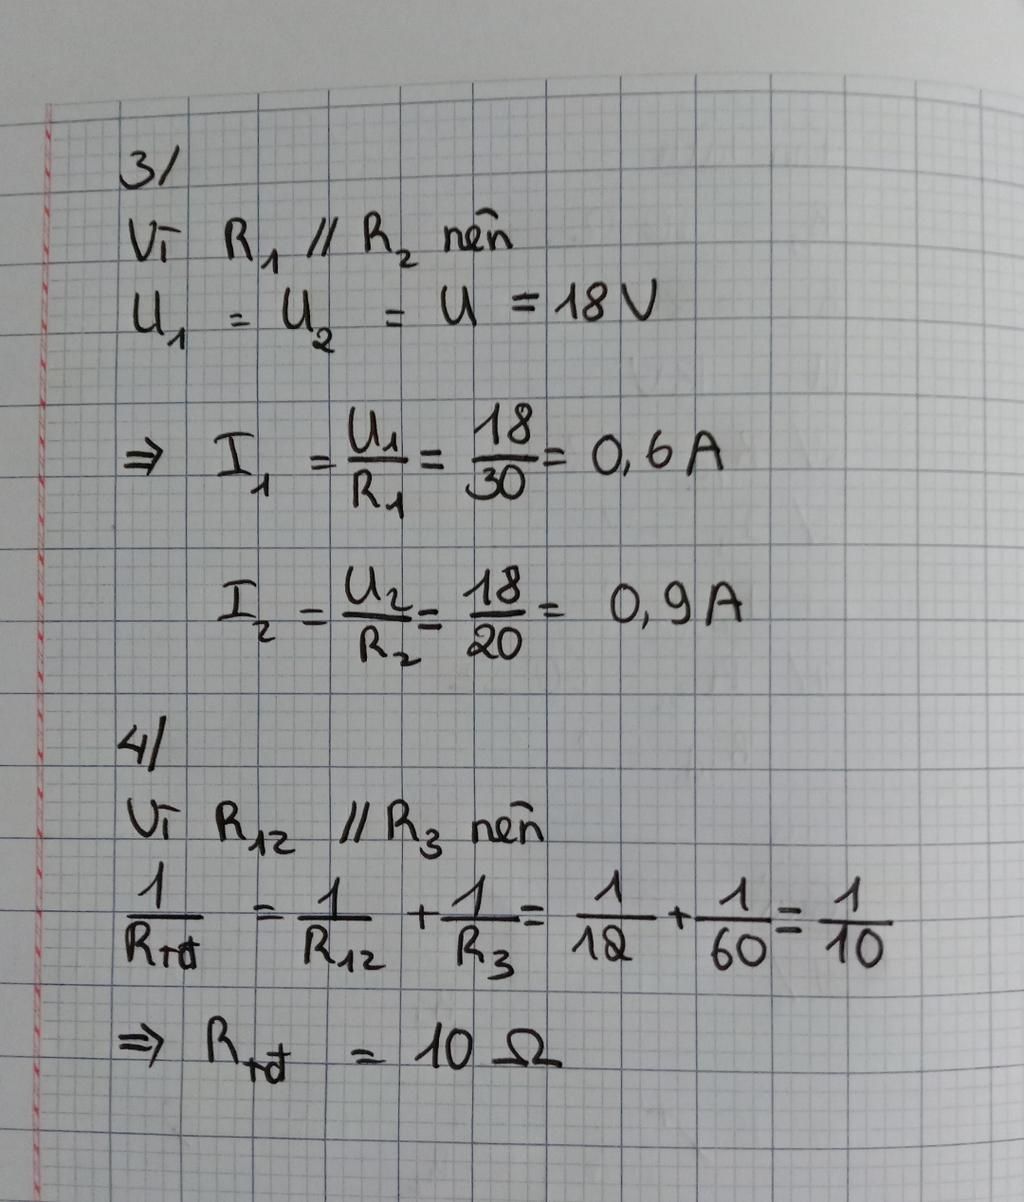 3/
Vì R₁ // R₂ nên
U₁ = U₂ = U = 18 V
⇒ I₁ = U₁/R₁ = 18/30 = 0,6 A
I₂ = U₂/R₂ = 18/20 = 0,9 A
4/
Vì R₁₂ // R₃ nên
1/Rtđ = 1/R₁₂ + 1/R₃ = 1/12 + 1/60 = 1/10
⇒ Rtđ = 10 Ω